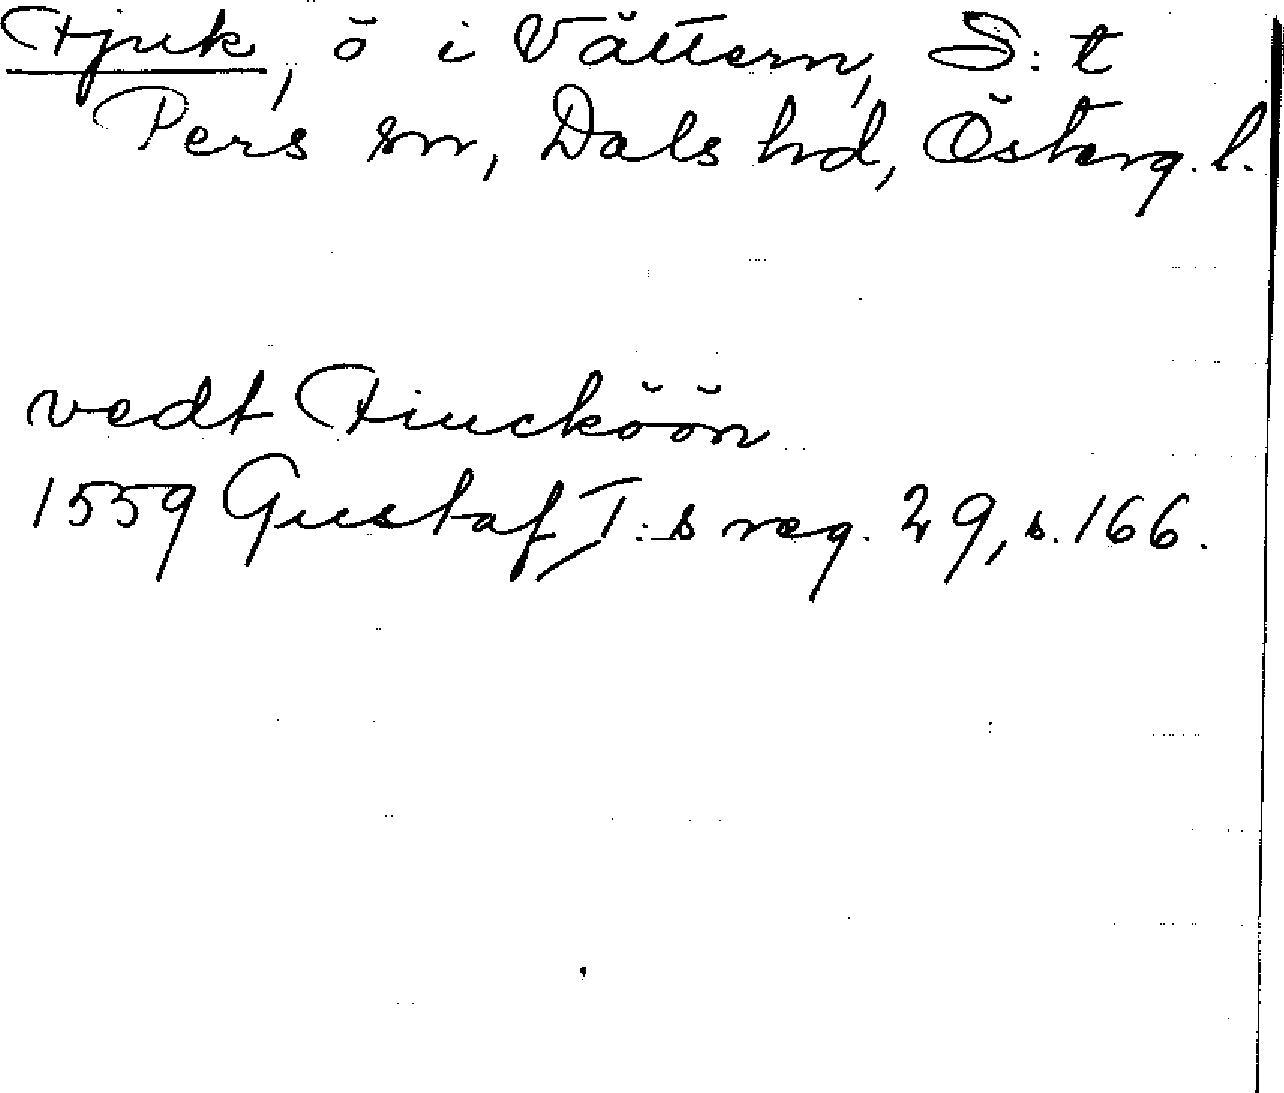 Fjuk, ö i Vättern, S:t
Pers sn, Dals hd, Österg. l.
vedt Fiucköön
1559 Gustaf I:s reg. 29, s. 166.